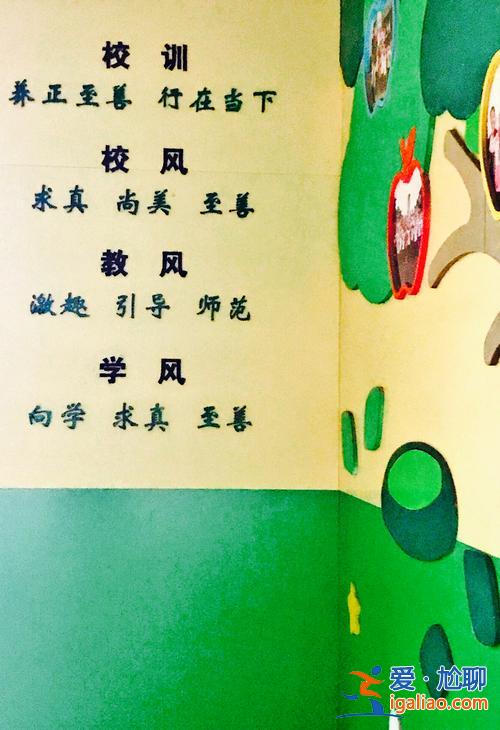 校 训
养正至善 行在当下
校 风
求真 尚美 至善
教 风
激趣 引导 师范
学 风
向学 求真 至善
爱·尬聊
igaliao.com